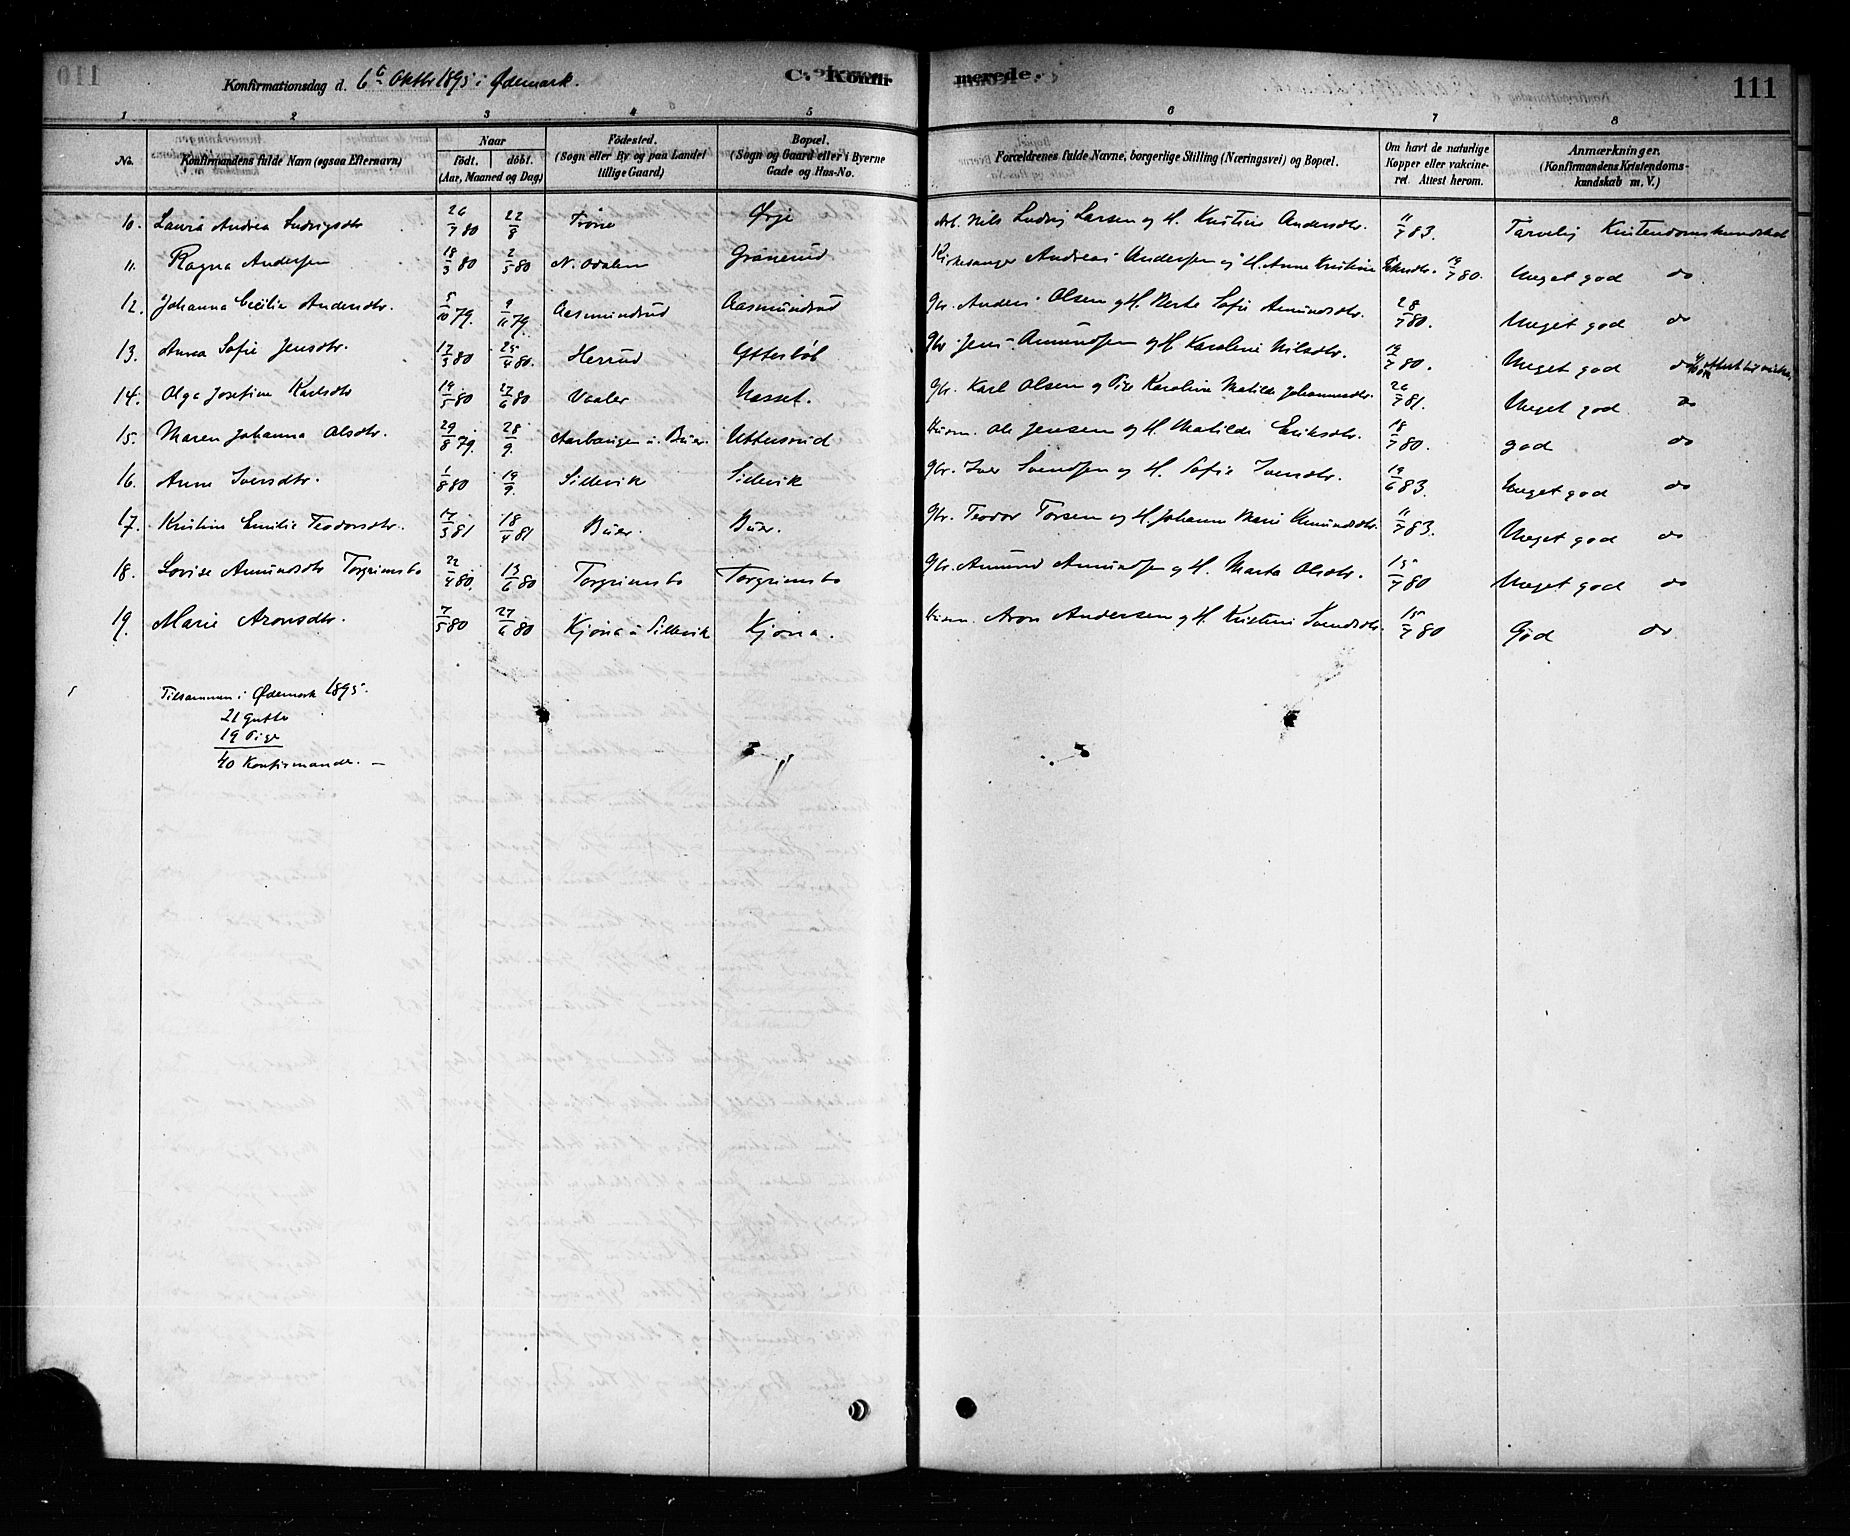 Konfirmationsdag d. 6te Oktbr 1895 i Ødemark.
C. Konfirmerede.
111
1 2 3 4 5 6 7 8
No.
Konfirmandens fulde Navn (ogsaa Efternavn)
Naar
födt. döbt.
(Aar, Maaned og Dag)
Födested.
(Sogn eller By og paa Landet
tillige Gaard)
Bopæl.
(Sogn og Gaard eller i Byerne
Gade og Hus-No.
Forældrenes fulde Navne, borgerlige Stilling (Næringsvei) og Bopæl.
Om havt de naturlige
Kopper eller vakcine-
ret. Attest herom.
Anmærkninger.
(Konfirmandens Kristendoms-
kundskab m. V.)
10. Laura Andrea Ludvigsdtr 26/7 80 22/8 Ørje Arb. Nils Ludvig Larsen og H. Kristine Andersdtr. 11/7 83. Tarvelig Kristendomskundskab
11. Ragna Andersen 18/3 80 2/5 80 N. Odalen Grånerud Kirkesanger Andreas Andersen og H. Anne Kristine 19/7 80. Meget god do
12. Johanna Cecilie Andersdtr. 5/10 79. 9/11 79. Aasmundrud Aasmundrud Gbr. Anders Olsen og H. Berte Sofie Amundsdtr. 28/7 80. Meget god do
13. Anna Sofie Jensdtr. 17/3 80 25/4 80. Herrud Ytterbøl Gbr. Jens Amundsen og H. Karoline Nilsdtr. 19/7 80. Meget god do
14. Olga Josefine Karlsdtr 19/5 80 27/6 80 Vaaler Næsset. Gbr. Karl Olsen og Karoline Matilde Johannesdtr. 26/7 81. Meget god do
15. Maren Johanna Olsdtr. 29/8 79. 28/9. Aarbangen u. Buer Uttersrud Husm. Ole Jensen og H. Matilde Eriksdtr. 18/7 80. god do
16. Anne Iversdtr. 1/8 80 19/9. Sillevik Sillevik Gbr. Iver Svendsen og H. Sofie Iversdtr. 19/6 83. Meget god do
17. Kristine Emilie Teodorsdtr. 17/3 81 18/4 81 Buer. Buer. Gbr. Teodor Torsen og H. Johanne Marie Amundsdtr. 11/7 83. Meget god do
18. Lovise Amundsdtr Torgrimsbo 22/4 80. 13/6 80 Torgrimsbo Torgrimsbo Gbr. Amund Amundsen og H. Marta Olsdtr. 15/7 80 Meget god do
19. Marie Aronsdtr. 7/5 80 27/6 80 Kjøna u. Sillevik Kjøna. Husm. Aron Andersen og H. Kristine Svendsdtr. 15/7 80 God do
Tilsammen i Ødemark 1895.
21 Gutter
19 Pige
40 Konfirmander. —